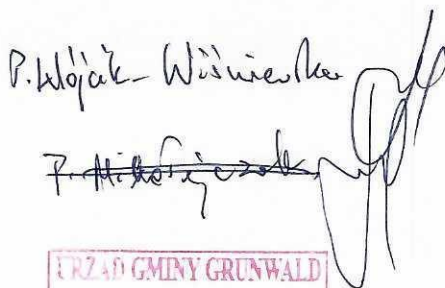 P. Wójcik-Wiśniewska
P. Mikołajczak
URZĄD GMINY GRUNWALD